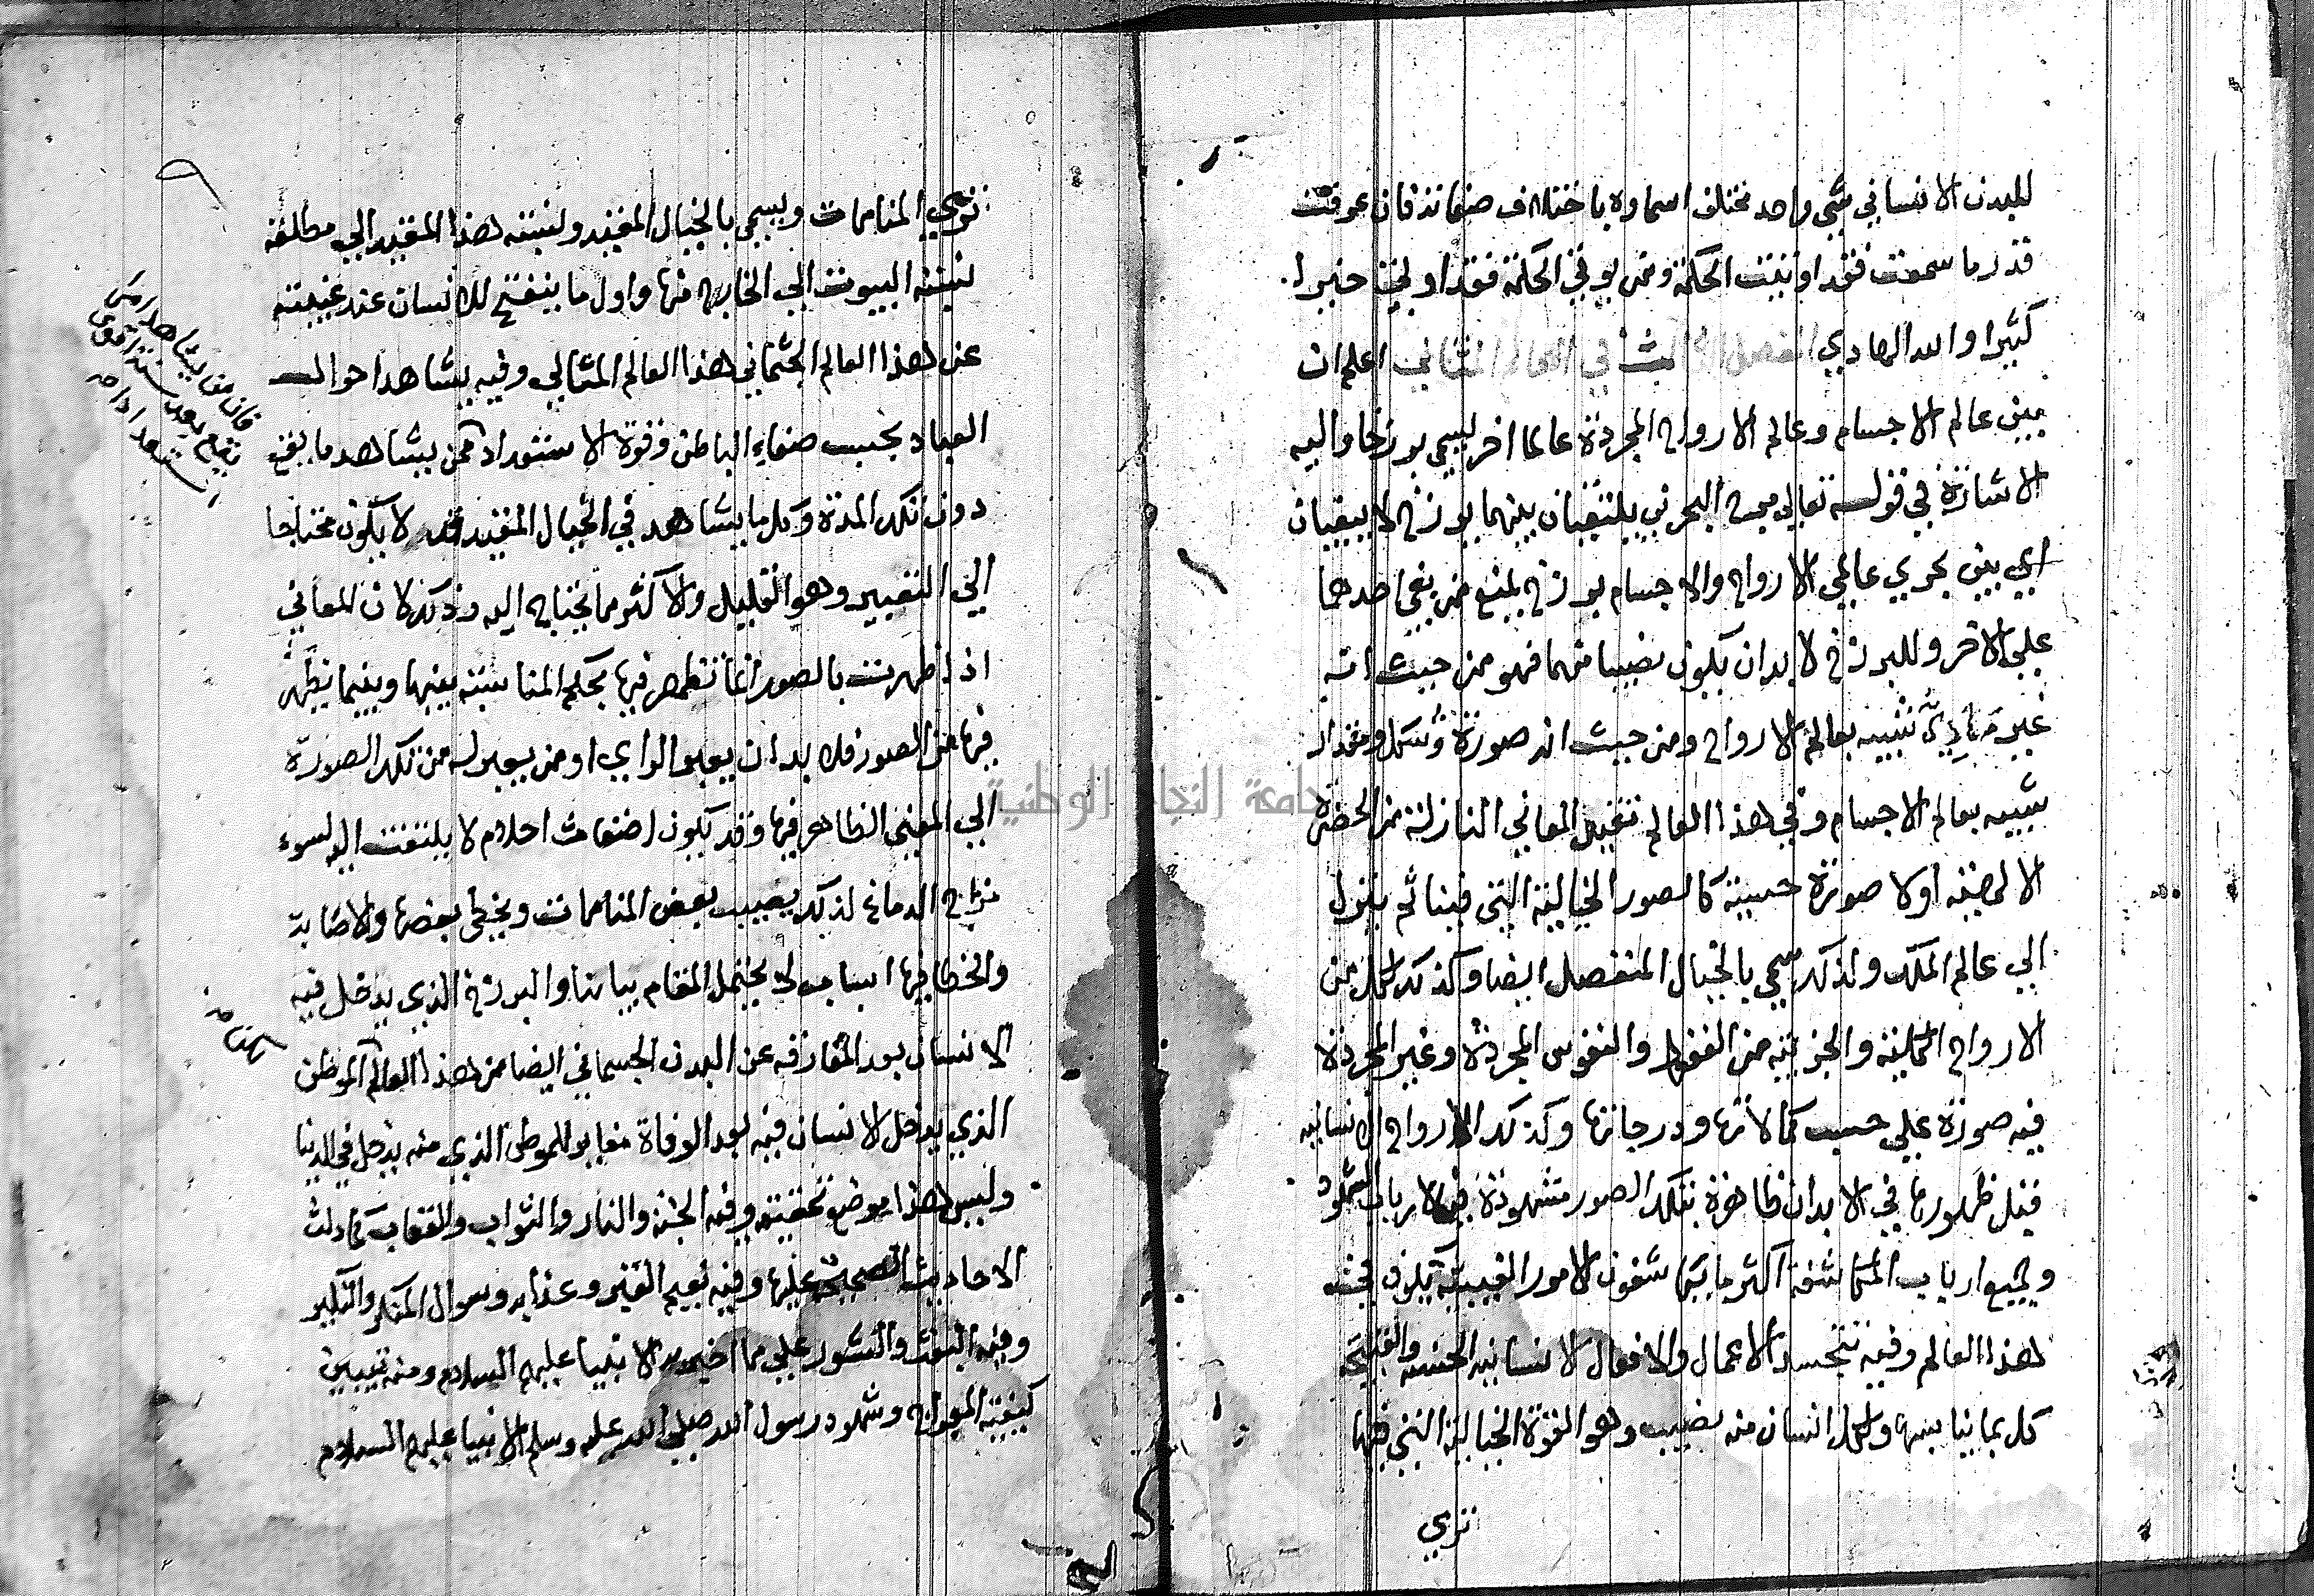 للبدن الانساني شي واحد مختلف اسماوه باختلاف صفاته فان عرفت
قدر ما سمعت فقد اوتيت الحكمة ومن يوتي الحكمة فقد اوتي خيرا
كثيرا والله الهادي الفصل الثالث في العالم المثالي اعلم ان
بين عالم الاجسام وعالم الارواح المجردة عالما اخر يسمي برزخا واليه
الاشارة في قوله تعالي مرج البحرين يلتقيان بينهما برزخ لا يبغيان
اي بين بحري عالمي الارواح والاجسام برزخ يمنع من بغي احدهما
علي الاخر وللبرزخ لا بد ان يكون نصيبا منهما فهو من حيث انه
غير مادي شبيه بعالم الارواح ومن حيث انه صورة وشكل ومقدار
شبيه بعالم الاجسام وفي هذا العالم تتخيل المعاني النازلة من الحضرة
الالهية اولا صورة حسية كالصور الخيالية التي فينا ثم ينزل
الي عالم الملك ولذلك يسمي بالخيال المنفصل ايضا وكذلك لكل من
الارواح الكلية والجزئية من العقول والنفوس المجردة وغير المجردة
فيه صورة علي حسب كمالاتها ودرجاتها وكذلك الارواح الانسانيه
قبل ظهورها في الابدان ظاهرة بتلك الصور مشهودة لارباب الشهود
وجميع ارباب المكاشفة اكثر ما يكاشفون الامور الغيبية يكون في
هذا العالم وفيه تتجسد الاعمال والافعال الانسانيه الحسنه والقبيحة
كل بما يناسبه ولكل انسان منه نصيب وهو القوة الخيالية التي فيها
تري
تري المنامات ويسمي بالخيال المقيد ونسبته هذا المقيد الي مطلقه
نسبته البيوت الي الخارج منها واول ما ينفتح للانسان عند غيبته
عن هذا العالم الجثماني هذا العالم المثالي وفيه يشاهد احوال
العباد بحسب صفاء الباطن وقوة الاستعداد فمن يشاهد ما يقع
دون تلك المدة وكل ما يشاهد في الخيال المقيد قد لا يكون محتاجا
الي التعبير وهو القليل والاكثر مما يحتاج اليه وذلك لان المعاني
اذا ظهرت بالصور انما تظهر فيها بحكم المناسبة بينها وبينما يظهر
فيها من الصور فلا بد ان يعبر الراي او من يعبر له من تلك الصورة
الي المعني الظاهر فيها وقد يكون اضغاث احلام لا يلتفت اليه لسوء
مزاج الدماغ لذلك يصيب بعض المنامات ويخطي بعضها والاصابة
والخطا فيها اسباب لا يحتمل المقام بيانها والبرزخ الذي يدخل فيه
الانسان بعد المفارقه عن البدن الجسماني ايضا من هذا العالم الموطن
الذي يدخل الانسان فيه بعد الوفاة مغاير للموطن الذي منه يدخل في الدنيا
وليس هذا موضع تحقيقه وفيه الجنه والنار والثواب والعقاب كما دلت
الاحاديث الصحيحة عليها وفيه نعيم القبر وعذابه وسوال المنكر والنكير
وفيه البعث والنشور علي ما اخبر به الانبيا عليهم السلام ومنه تبيين
كيفية المعراج وشهود رسول الله صلي الله عليه وسلم الانبيا عليهم السلام
فان من يشاهد امرا
يقع بعد سنة اقوي
استعدادا من
جامعة النجاح الوطنية